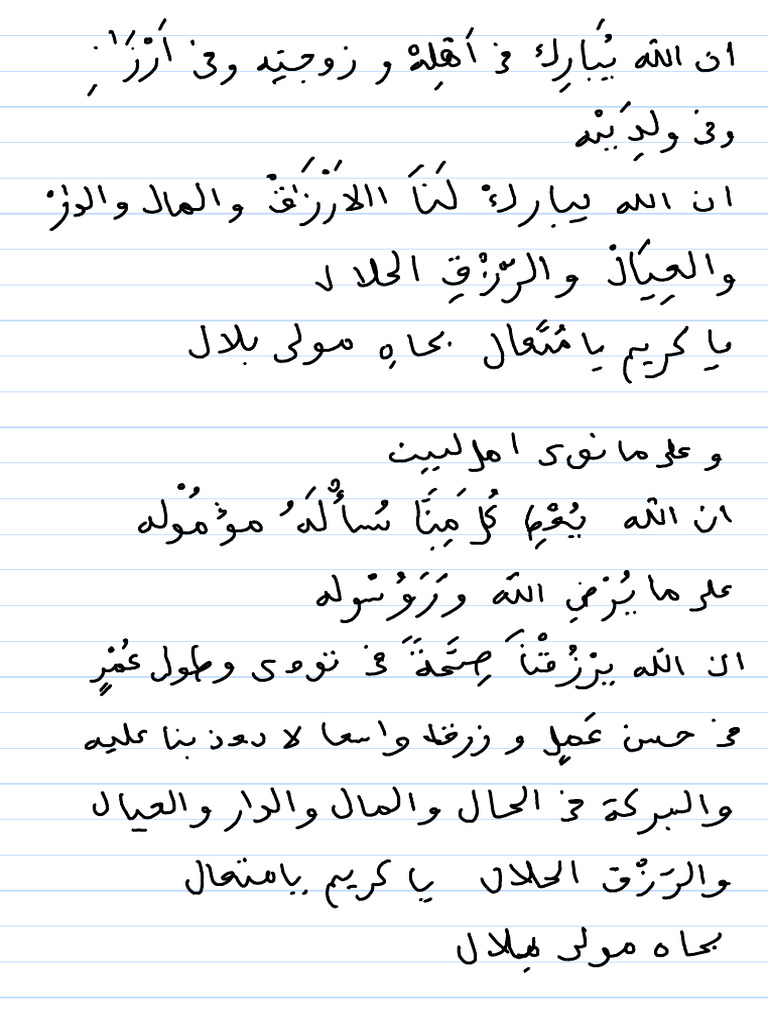 ان الله يُبَارِك في اَهْلِهْ و زوجتِه وفي اَرْزَاٰنِ
وفي ولدِيَيْه
ان الله يبارك لَنَا الارْزَاقْ والمال والدارْ
والعِيَالْ والرِّزْقِ الحلال
يا كريم يا مُتَعال بجاهِ مولى بلال
وعلى ما نوى اهل لبيت
ان الله يُعْطِ كُل مَِنَّا سُأْلَهُ مؤمُوْله
على ما يُرْضي الله ورَسُوله
ان الله يرْزُقْنَا صِحَّةً في تقوى وطول عُمْرٍ
في حسن عَمَلٍ و زرقا واسعا لا تعذبنا عليه
والبركة في الحال والمال والدار والعيال
والرَزْق الحلال يا كريم يامتعال
بجاه مولى بلال